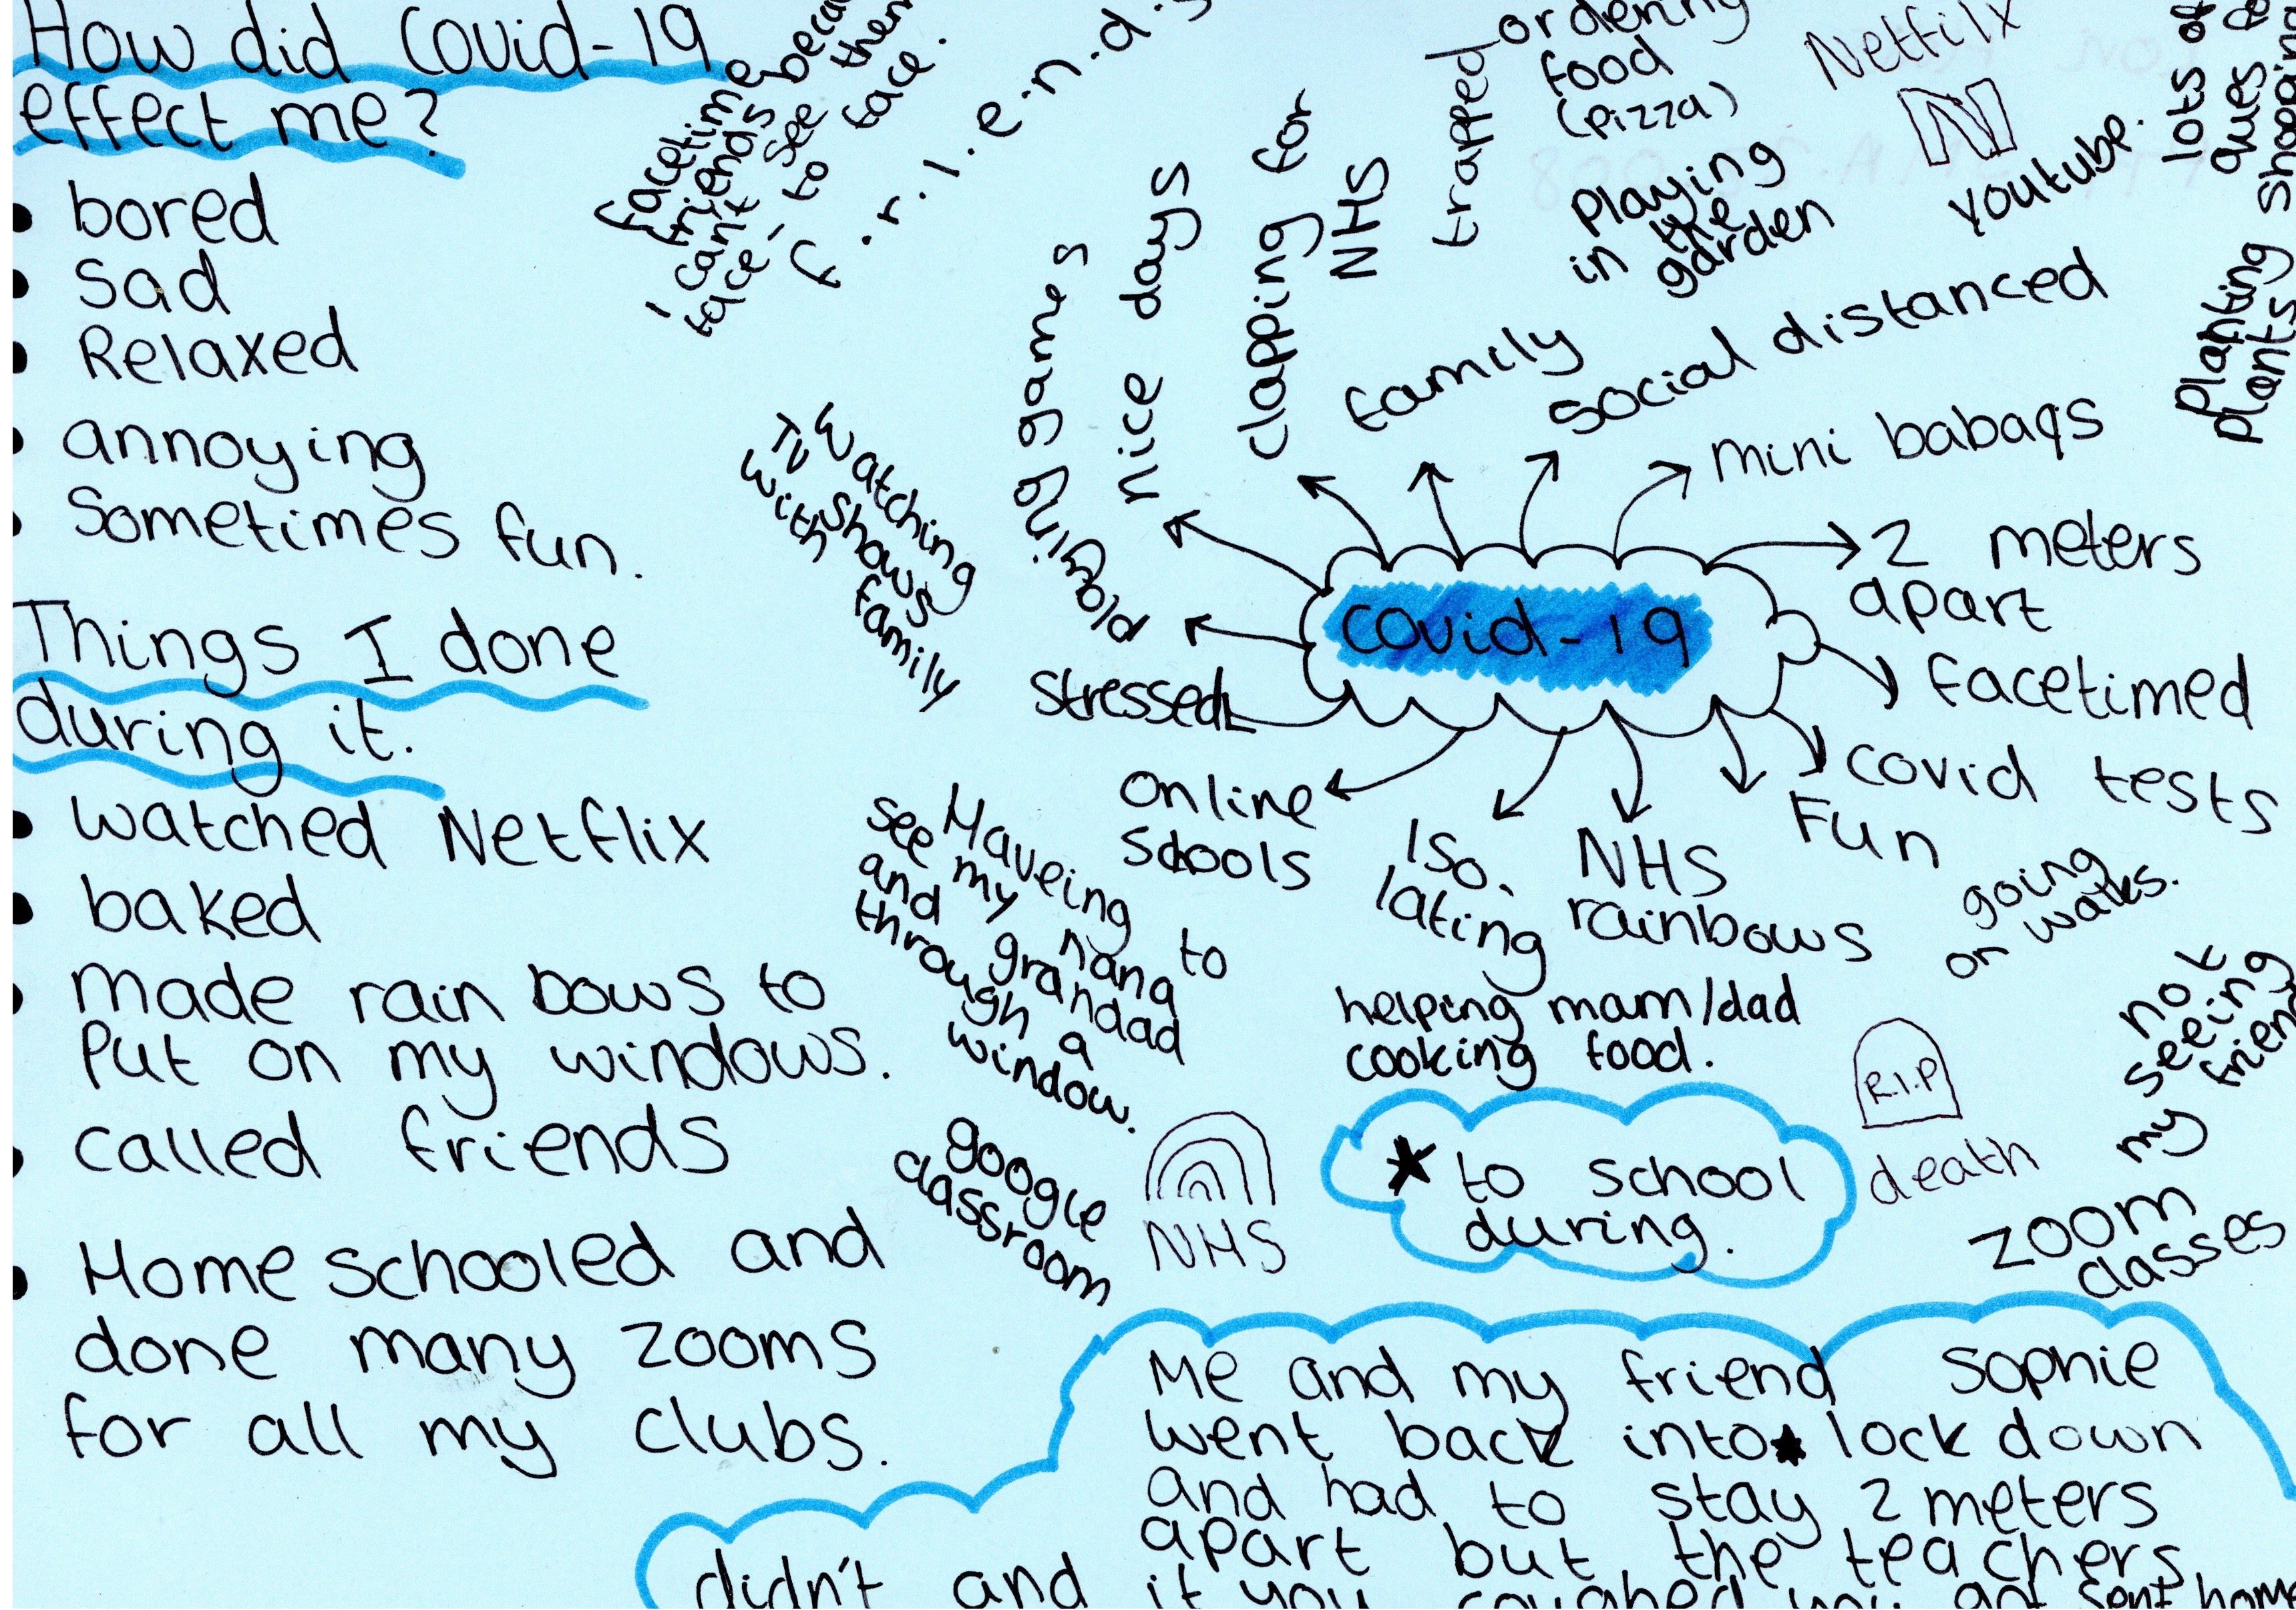 How did Covid-19
effect me?
bored
Sad
Relaxed
annoying
Sometimes fun.
Things I done
during it.
watched Netflix
baked
made rain bows to
Put on my windows.
called friends
Home schooled and
done many zooms
for all my clubs.
facetime
friends
I can't see them
face to face.
f.r.i.e.n.d.s
Watching
TV shows
with family
playing games
nice days
clapping for
NHS
trapped
ordering
food
(pizza)
Netfilx
N
youtube.
playing
in the
garden
lots of
ques
shopping
Planting
plants
family
social distanced
mini babaqs
2 meters
apart
facetimed
covid tests
Fun
NHS
rainbows
Iso.
lating
online
schools
stressed
covid-19
going
on walks.
not
seeing
my
Haveing to
see my nana
and grandad
through a
window.
helping mam/dad
cooking food.
google
classroom
NHS
to school
during.
R.I.P
death
zoom
classes
Me and my friend Sophie
went back into lock down
and had to stay 2 meters
apart but the teachers
didn't and if you coughed you got sent home